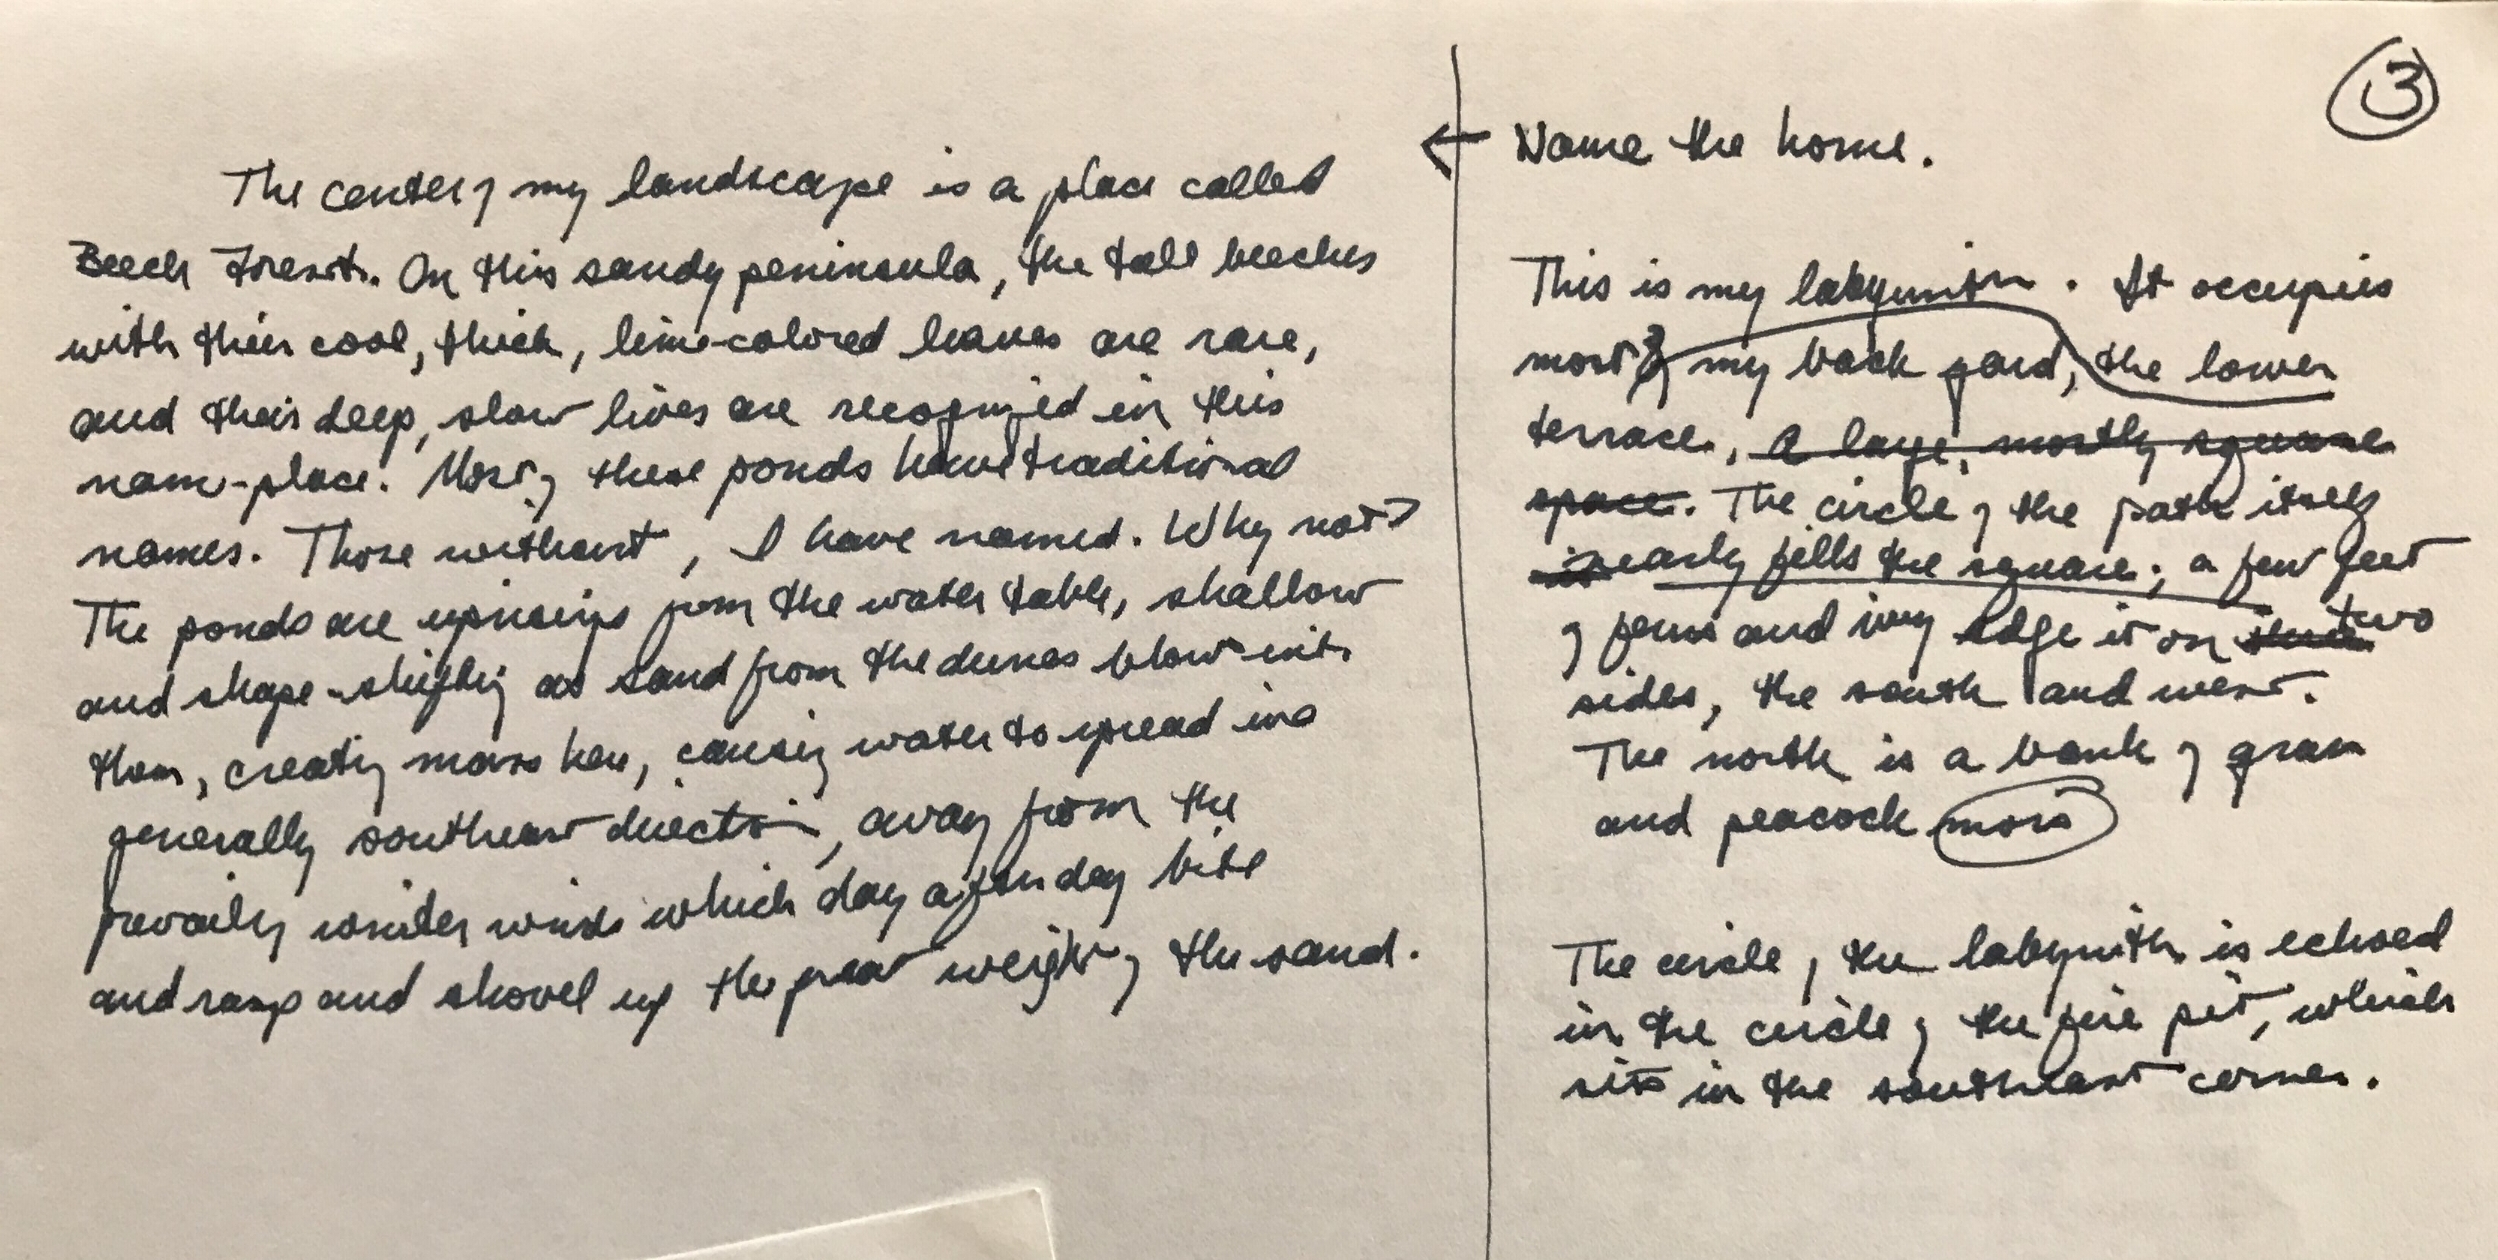 The center of my landscape is a place called
Beech Forest. On this sandy peninsula, the tall beeches
with their cool, thick, lime-colored leaves are rare,
and their deep, slow lives are recognized in this
name-place. Most of these ponds have traditional
names. Those without, I have named. Why not?
The ponds are uprisings from the water table, shallow
and shape-shifting as sand from the dunes blows into
them, creating mass here, causing water to spread in a
generally southeast direction, away from the
prevailing winter winds which day after day bite
and rasp and shovel up the great weight of the sand.
3
← Name the home.
This is my labyrinth. It occupies
most of my back yard, the lower
terrace, a large, mostly square
space. The circle of the path itself
nearly fills the square; a few feet
of ferns and ivy edge it on two
sides, the south and west.
The north is a bank of grass
and peacock moss
The circle of the labyrinth is echoed
in the circle of the fire pit, which
sits in the southeast corner.